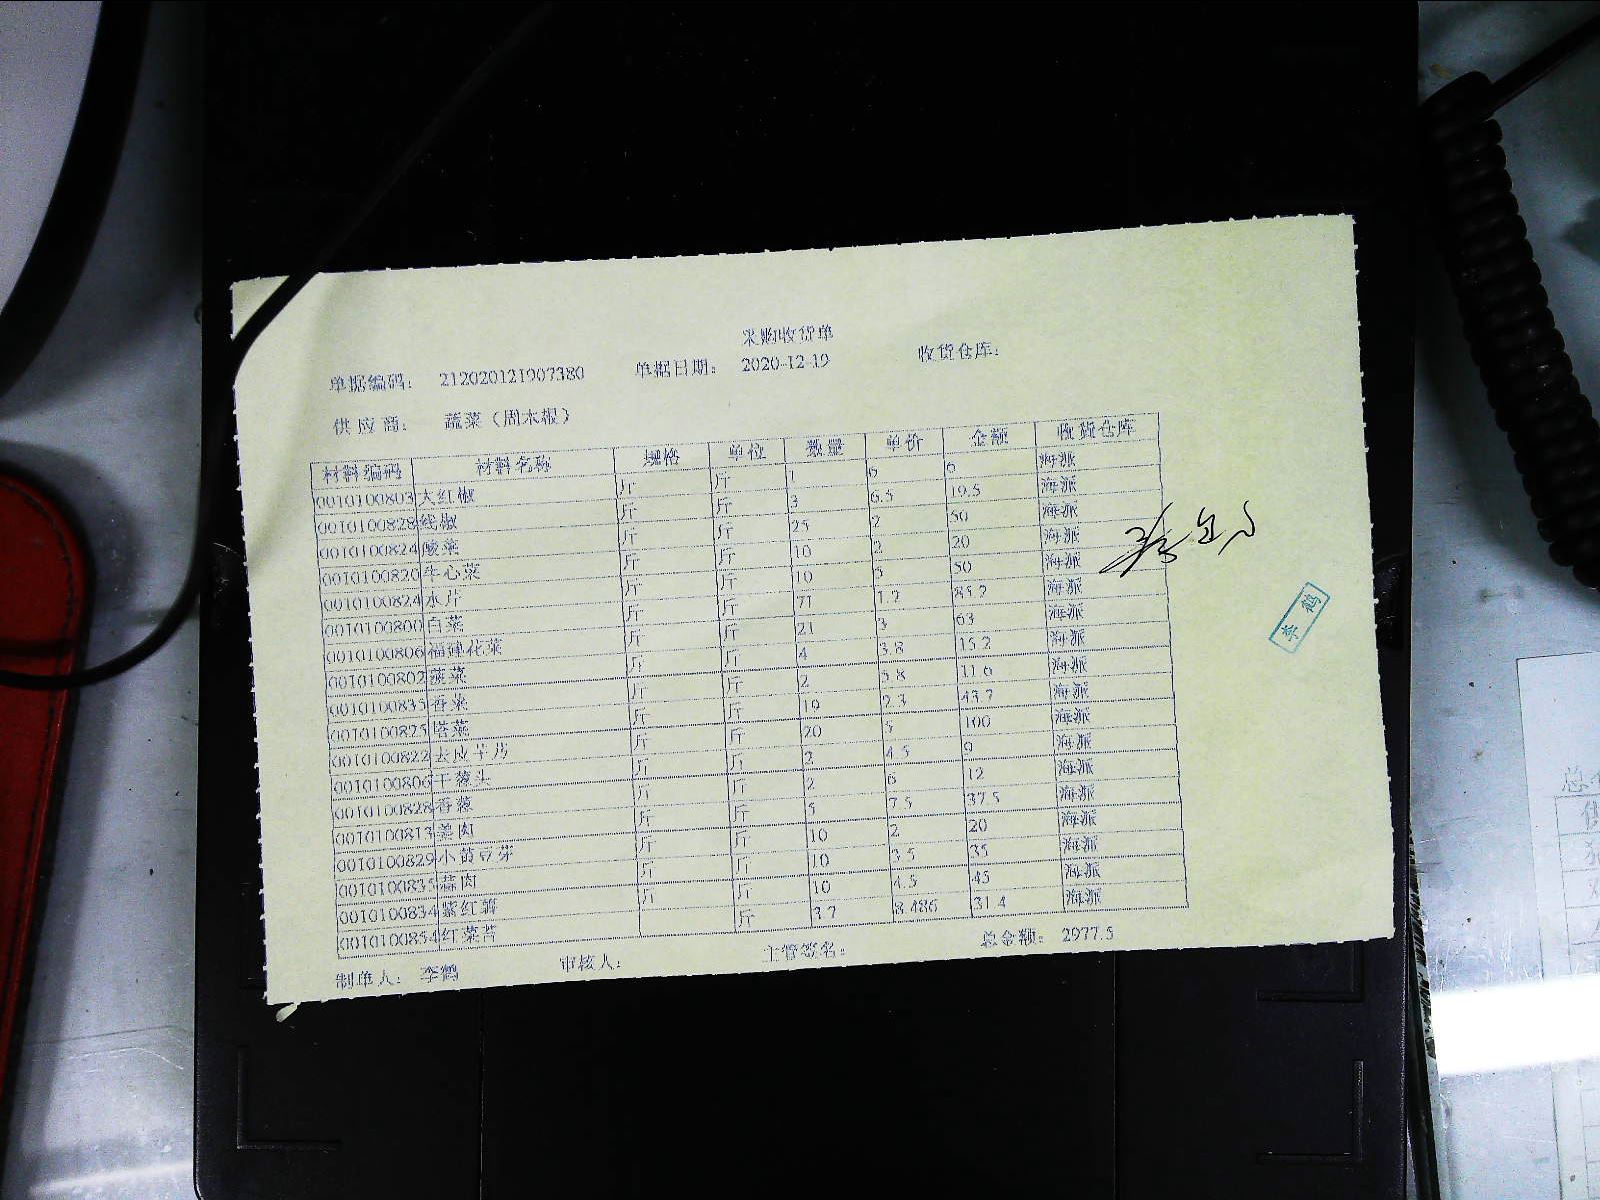 采购收货单
单据编码: 212020121907380 单据日期: 2020-12-19 收货仓库:
供应商: 蔬菜（周木根）
材料编码 材料名称 规格 单位 数量 单价 金额 收货仓库
0010100803 大红椒 斤 斤 1 6 6 海派
0010100828 线椒 斤 斤 3 6.5 19.5 海派
0010100824 酸菜 斤 斤 25 2 50 海派
0010100820 牛心菜 斤 斤 10 2 20 海派
0010100824 冰片 斤 斤 10 5 50 海派
0010100800 白菜 斤 斤 71 1.2 85.2 海派
0010100806 福建花菜 斤 斤 21 3 63 海派
0010100802 菠菜 斤 斤 4 3.8 15.2 海派
0010100835 香菜 斤 斤 2 5.8 11.6 海派
0010100825 塔菜 斤 斤 19 2.3 43.7 海派
0010100822 去皮芋艿 斤 斤 20 5 100 海派
0010100806 干葱头 斤 斤 2 4.5 9 海派
0010100828 香葱 斤 斤 2 6 12 海派
0010100813 姜肉 斤 斤 5 7.5 37.5 海派
0010100829 小黄豆芽 斤 斤 10 2 20 海派
0010100835 蒜肉 斤 斤 10 3.5 35 海派
0010100834 紫红薯 斤 斤 10 4.5 45 海派
0010100854 红菜苔 斤 3.7 8.486 31.4 海派
制单人: 李鹤 审核人: 主管签名: 总金额: 2977.5
李鹤